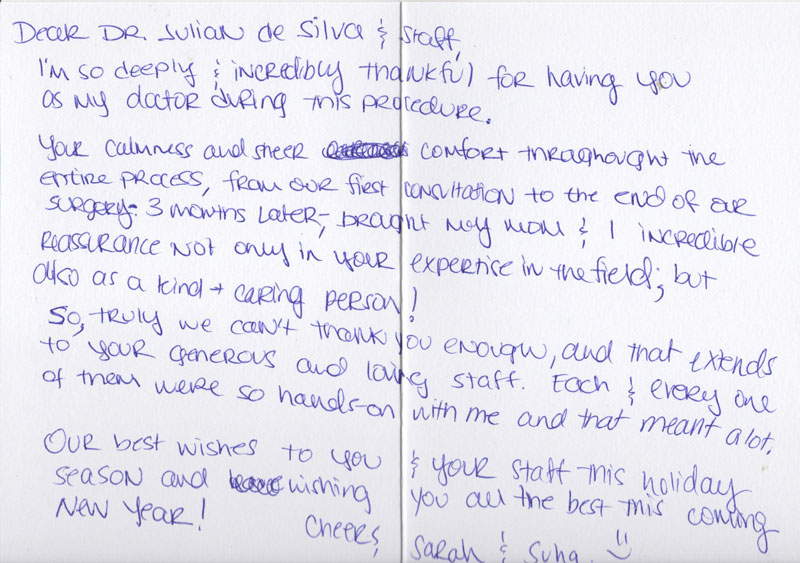 Dear Dr. Julian de Silva & Staff,
I'm so deeply & incredibly thankful for having you
as my doctor during this procedure.
Your calmness and sheer comfort throughought the
entire process, from our first consultation to the end of our
surgery - 3 months later -, brought my mom & I incredible
reassurance not only in your expertise in the field; but
also as a kind + caring person!
So, truly we can't thank you enough, and that extends
to your generous and loving staff. Each & every one
of them were so hands-on with me and that meant alot.
Our best wishes to you & your staff this holiday
season and wishing you all the best this coming
New Year!
Cheers,
Sarah & Suha. :)